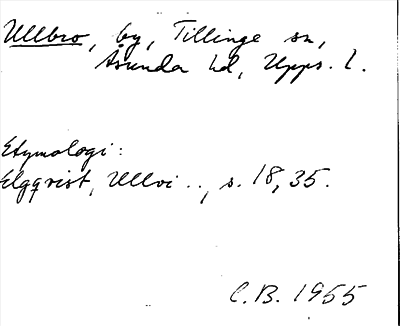 Ullbro, by, Tillinge sn,
Åsunda hd, Upps. l.
Etymologi:
Elgqvist, Ullvi .., s. 18, 35.
C.B. 1955